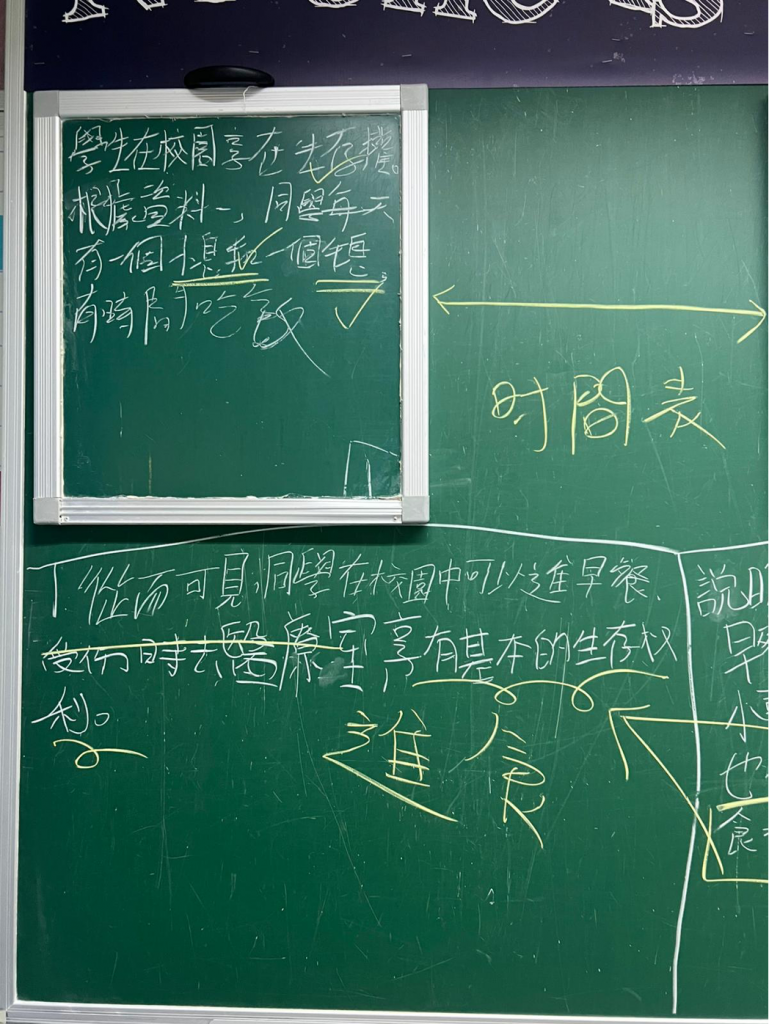 學生在校園享在生存權。
根據資料一，同學每天
有一個小息和一個午息，
有時間吃飯
时間表
從而可見，同學在校園中可以進早餐、
受伤時去醫療室享有基本的生存权
利。
進食
說明
早
小
也
食